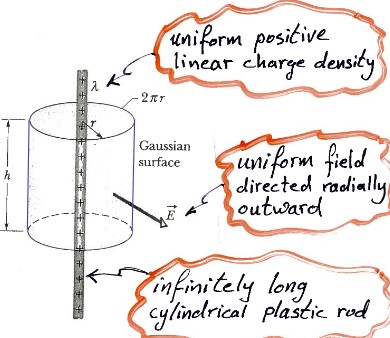 uniform positive
linear charge density
λ
2πr
r
Gaussian
surface
h
E
uniform field
directed radially
outward
infinitely long
cylindrical plastic rod